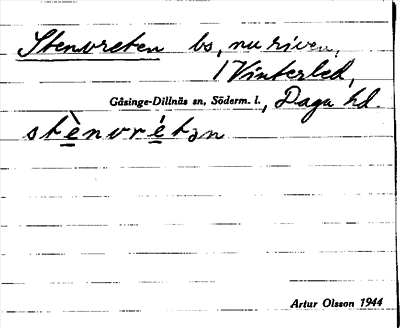 Stenvreten bs, nu riven,
/ Vinterled,
Gåsinge-Dillnäs sn, Söderm. l., Daga hd.
stὲnvrétən
Artur Olsson 1944